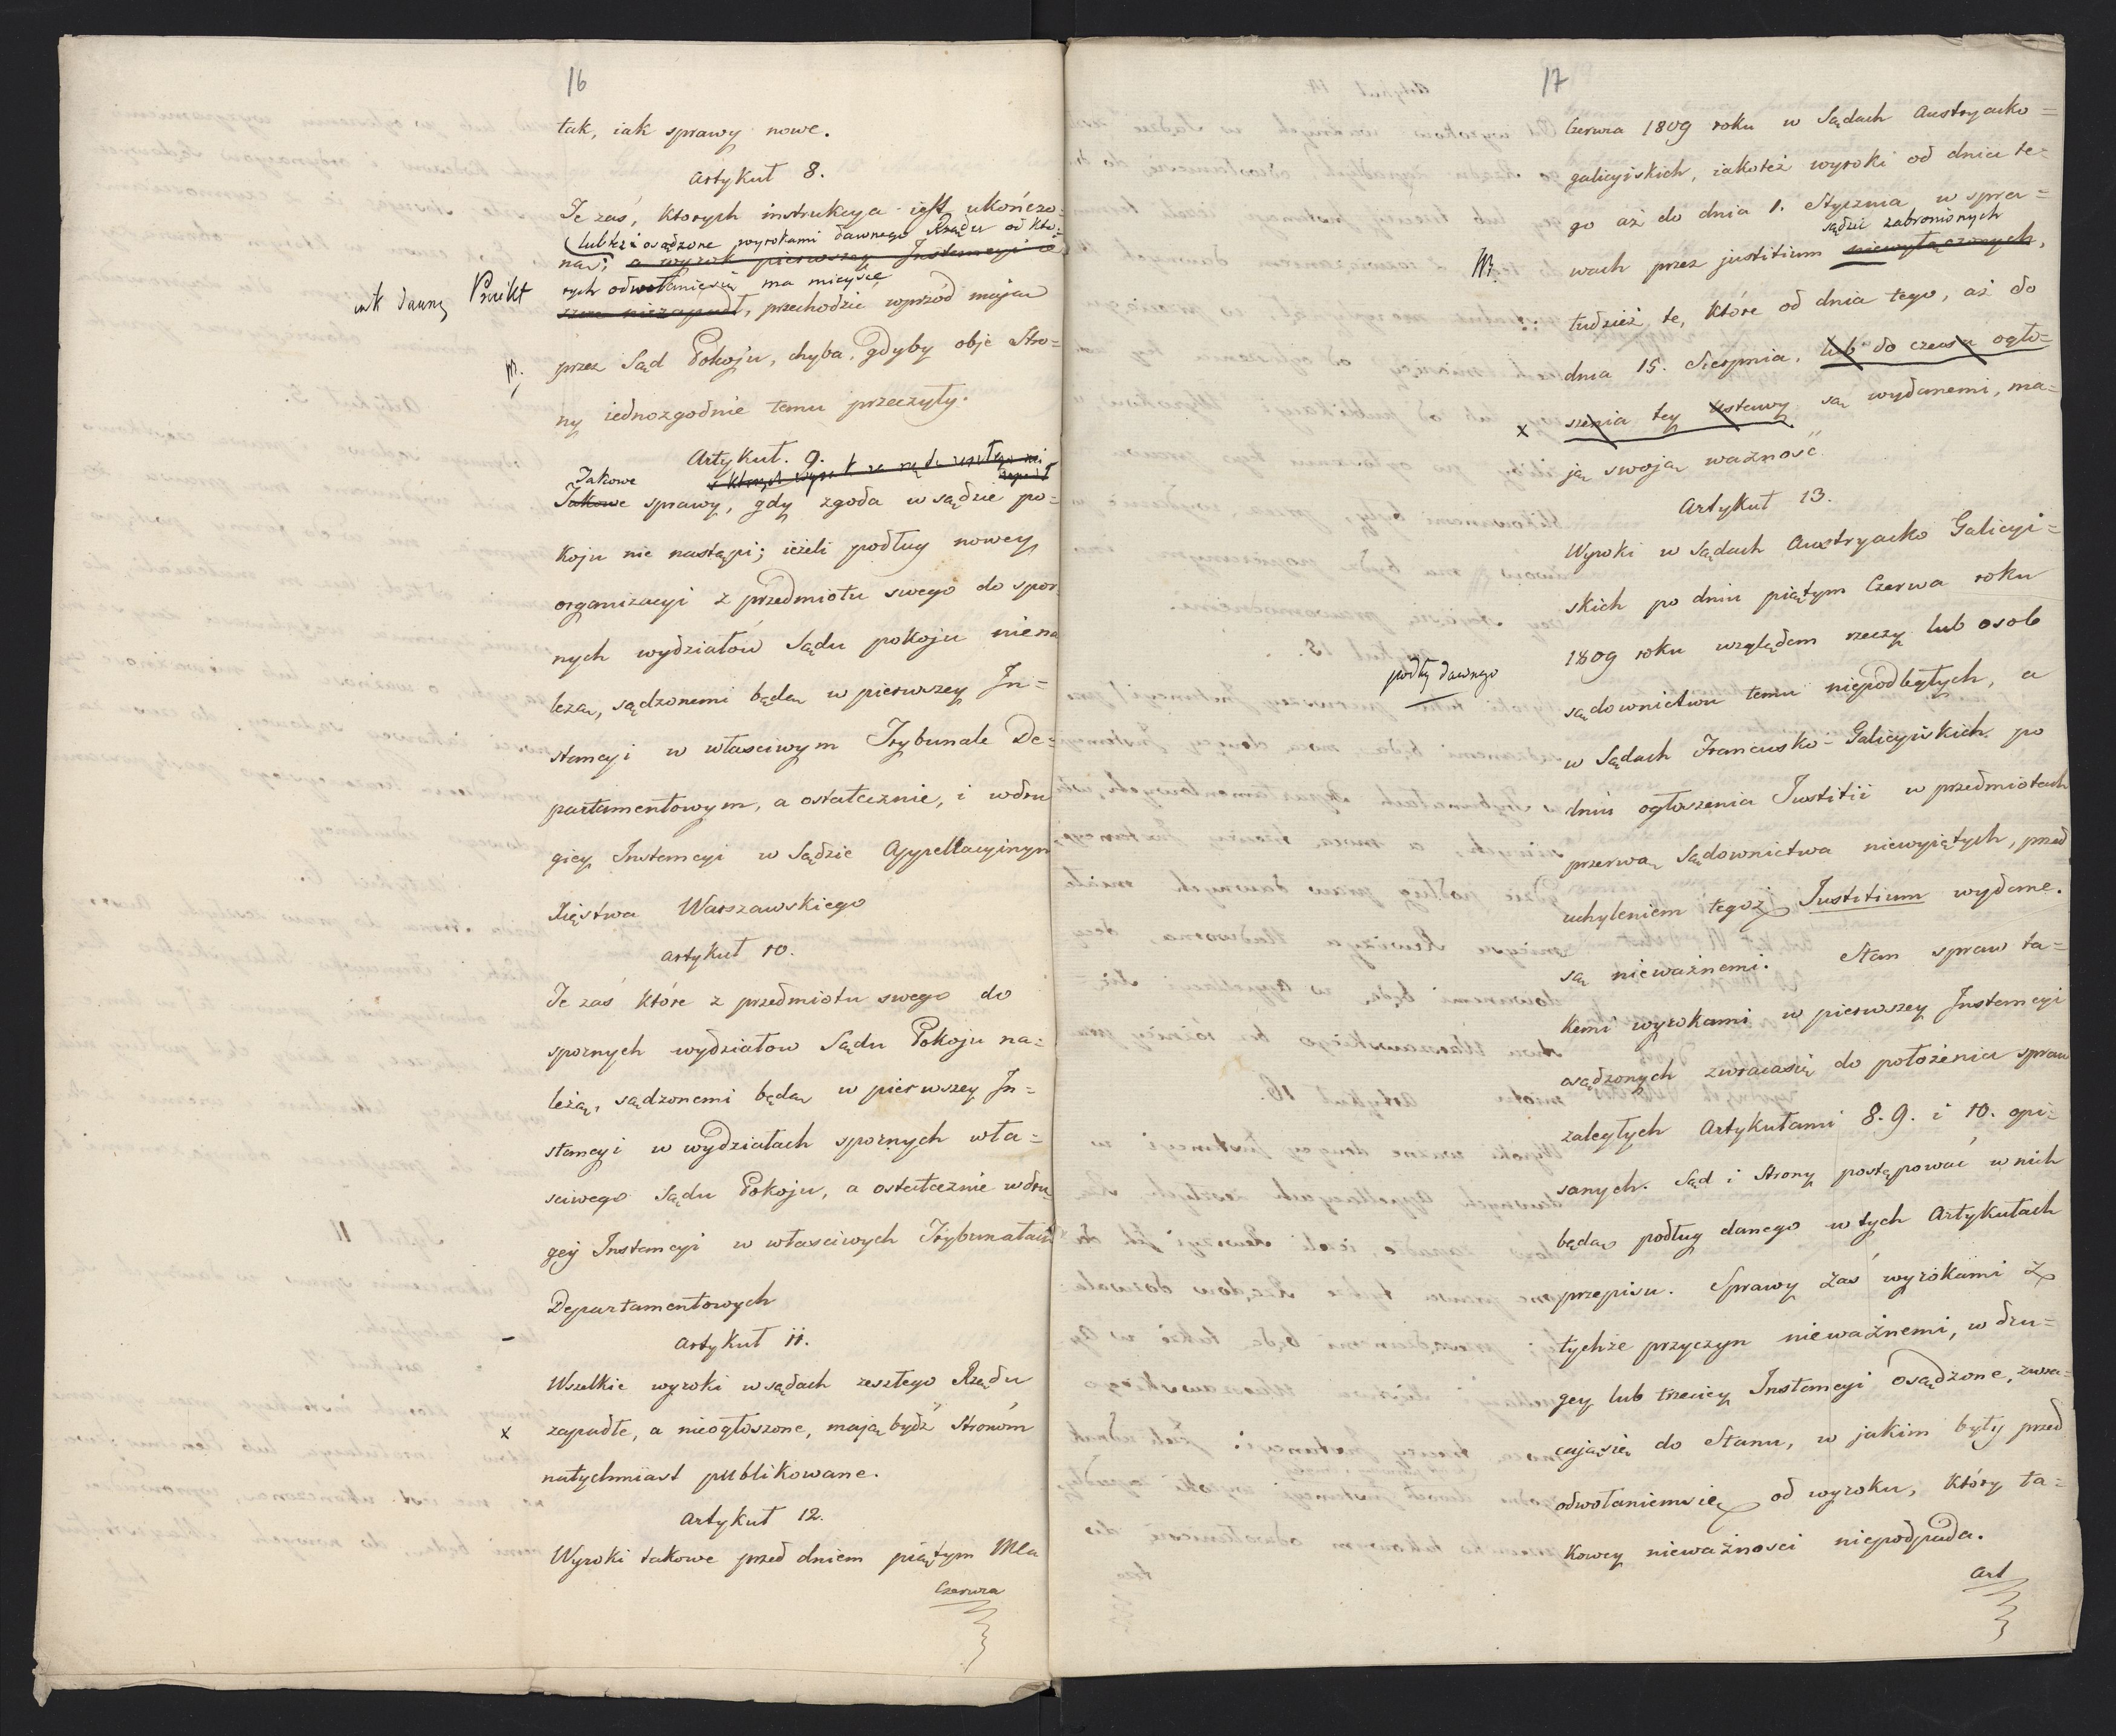 16
tak, iak sprawy nowe.
Artykuł 8.
Te zaś, których instrukcya iest ukończo=
lub też osądzone wyrokami dawnego Rządu od któ=
na; a wyrok pierwszey Instancyi ie
rych odwołaniesię ma mieysce
szcze niezapadł, przechodzić wprzód maią
Proiekt
przez Sąd Pokoju, chyba, gdyby obie Stro=
ny iednozgodnie temu przeczyły.
Artykuł. 9.
w których wyrok za rządu zeszłego nie
zapadł
Takowe
Takowe sprawy, gdy zgoda w sądzie po=
koju nie nastąpi; ieżeli podług nowey
organizacyi z przedmiotu swego do spor
nych wydziałów Sądu pokoju niena
leżą, sądzonemi będą w pierwszey In=
stancyi w właściwym Trybunale De=
partamentowym, a ostatecznie, i wdru
giey Instancyi w Sądzie Appellacyinym
Xięstwa Warszawskiego
Artykuł 10.
Te zaś które z przedmiotu swego do
spornych wydziałow Sądu Pokoju na=
leżą, sądzonemi będą w pierwszey In=
stancyi w wydziałach spornych wła=
sciwego Sądu Pokoju, a ostatecznie wdru
gey Instancyi w właściwych Trybunałach
Departamentowych
Artykuł 11.
Wszelkie wyroki w sądach zeszłego Rządu
x zapadłe, a nieogłoszone, maią bydź Stronóm
natychmiast publikowane.
Artykuł 12.
Wyroki takowe przed dniem piątym Mca
Czerwca
17
Czerwca 1809 roku w Sądach Austryacko=
galicyiskich, iakoteż wyroki od dnia te=
go aż do dnia 1. Stycznia w spra=
sądzić zabronionych
wach przez justitium niewyłączonych,
tudzież te, które od dnia tego, aż do
dnia 15. Sierpnia, lub do czasu ogło=
x szenia tey Ustawy są wydanemi, ma=
ją swoją ważność
Artykuł 13.
Wyroki w Sądach Austryacko Galicyi=
skich po dniu piątym Czerwca roku
1809 roku względem rzeczy lub osob
podłg dawnego
sądownictwu temu niepodległych, a
w Sądach Francusko-Galicyiskich po
dniu ogłoszenia Justitii w przedmiotach
przerwą Sądownictwa niewyjętych, przed
uchyleniem tegoż Justitium wydane.
są nieważnemi. Stan spraw ta=
kemi wyrokami w pierwszey Instancyi
osądzonych zwracasię do położenia spraw
zaległych Artykułami 8. 9. i 10. opi=
sanych. Sąd i Strony postępować w nich
będą podług danego w tych Artykułach
przepisu. Sprawy zaś wyrokami z
tychże przyczyn nieważnemi, w dru=
gey lub trzeciey Instancyi osądzone, zwra=
cająsię do Stanu, w jakim były przed
odwołaniemsię od wyroku, który ta=
kowey nieważności niepodpada.
Art